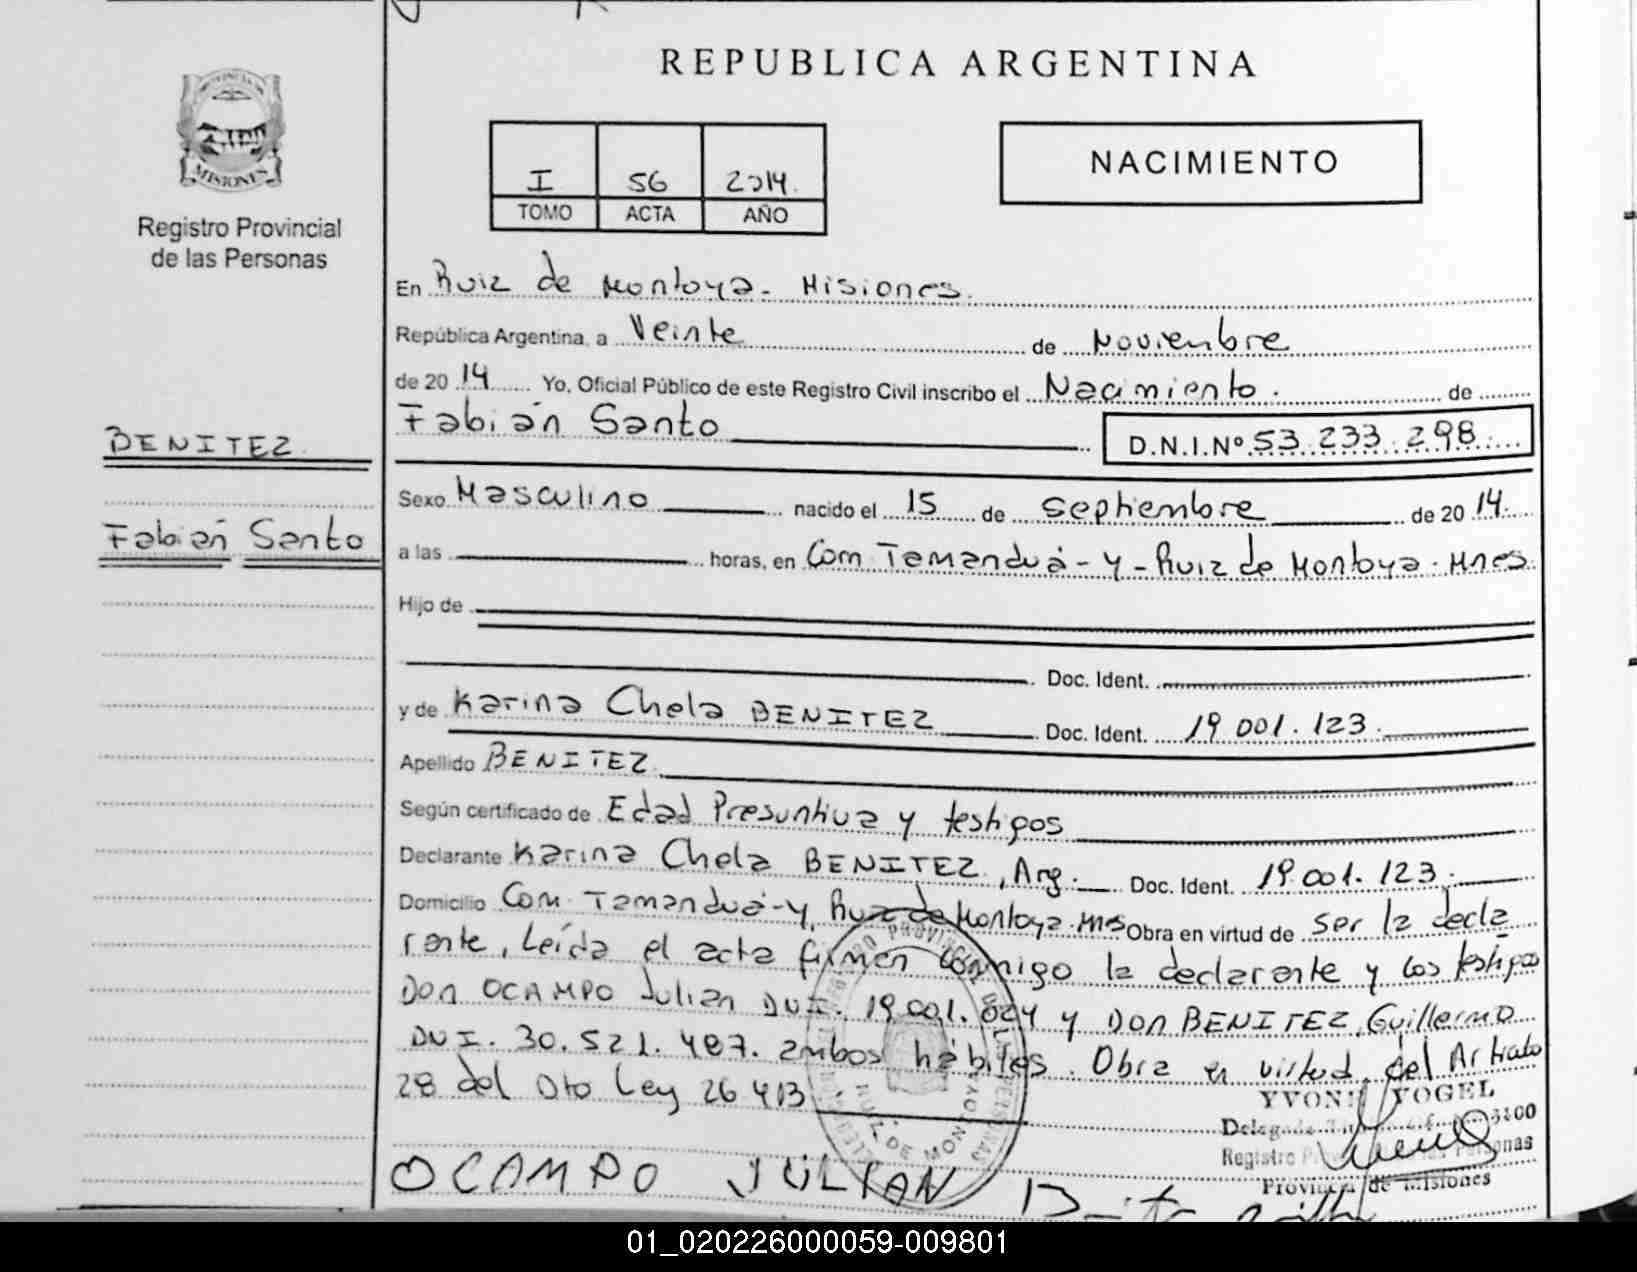 REPUBLICA ARGENTINA
PROVINCIA DE
MISIONES
Registro Provincial
de las Personas
I 56 2014.
TOMO ACTA AÑO
NACIMIENTO
En Ruiz de Montoya - Misiones.
República Argentina, a Veinte de Noviembre
de 20 14 Yo, Oficial Público de este Registro Civil inscribo el Nacimiento. de
Fabián Santo D.N.I.Nº 53.233.298
BENITEZ
Fabián Santo
Sexo Masculino nacido el 15 de Septiembre de 20 14.
a las horas, en Com Tamanduá - Y - Ruiz de Montoya. Mnes.
Hijo de
Doc. Ident.
y de Karina Chela BENITEZ Doc. Ident. 19 001.123.
Apellido BENITEZ
Según certificado de Edad Presuntiva y testigos
Declarante Karina Chela BENITEZ, Arg. Doc. Ident. 19.001.123.
Domicilio Com Tamanduá - Y, Ruiz de Montoya. Mns Obra en virtud de ser la decla
rante, Leída el acta firman conmigo la declarante y los testigos
Don OCAMPO Julian DNI. 19.001.024 y Don BENITEZ, Guillermo
DNI. 30.521.487. ambos hábiles. Obra en virtud del Articulo
28 del Dto Ley 26 413
YVONE VOGEL
Registro
Provincia de Misiones
RUIZ DE MONTOYA
OCAMPO JULIAN
01_020226000059-009801